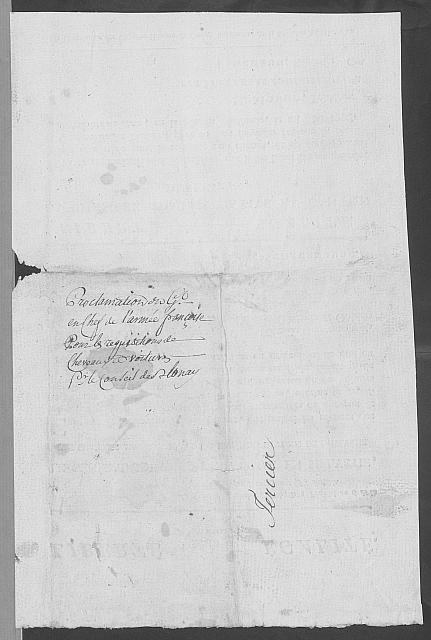 Proclamation du Gᵃˡ
en Chef de l'armée française
Pour les requisitions de
Chevaux & voitures
Pr le Conseil de Blonay
Tercier